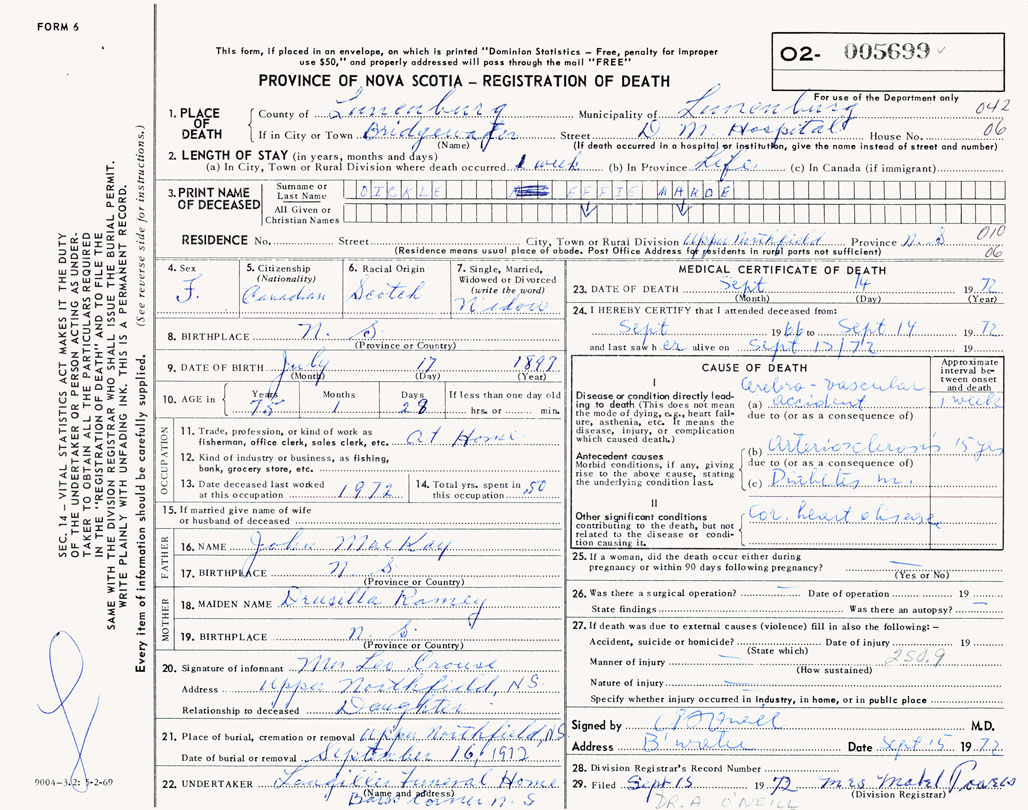 FORM 6
This form, if placed in an envelope, on which is printed "Dominion Statistics – Free, penalty for improper
use $50," and properly addressed will pass through the mail "FREE"
PROVINCE OF NOVA SCOTIA – REGISTRATION OF DEATH
02- 005699
For use of the Department only
SEC. 14 – VITAL STATISTICS ACT MAKES IT THE DUTY
OF THE UNDERTAKER OR PERSON ACTING AS UNDER-
TAKER TO OBTAIN ALL THE PARTICULARS REQUIRED
IN THE "REGISTRATION OF DEATH" AND TO FILE THE
SAME WITH THE DIVISION REGISTRAR WHO SHALL ISSUE THE BURIAL PERMIT.
WRITE PLAINLY WITH UNFADING INK. THIS IS A PERMANENT RECORD.
Every item of information should be carefully supplied. (See reverse side for instructions.)
9004-3.2: 5-2-69
1. PLACE OF DEATH
County of Lunenburg Municipality of Lunenburg 042
If in City or Town Bridgewater Street D. M. Hospital House No. 06
(Name) (If death occurred in a hospital or institution, give the name instead of street and number)
2. LENGTH OF STAY (in years, months and days)
(a) In City, Town or Rural Division where death occurred 1 week (b) In Province Life (c) In Canada (if immigrant)
3. PRINT NAME OF DECEASED
Surname or Last Name OICKLE EFFIE MAUDE
All Given or Christian Names
RESIDENCE No. Street City, Town or Rural Division Upper Northfield Province N. S 010
(Residence means usual place of abode. Post Office Address for residents in rural parts not sufficient) 06
4. Sex F.
5. Citizenship (Nationality) Canadian
6. Racial Origin Scotch
7. Single, Married, Widowed or Divorced (write the word) Widow
8. BIRTHPLACE N. S.
(Province or Country)
9. DATE OF BIRTH July 17 1897
(Month) (Day) (Year)
10. AGE in Years 75 Months 1 Days 28 If less than one day old hrs. or min.
OCCUPATION
11. Trade, profession, or kind of work as
fisherman, office clerk, sales clerk, etc. At Home
12. Kind of industry or business, as fishing,
bank, grocery store, etc.
13. Date deceased last worked at this occupation 1972
14. Total yrs. spent in this occupation 50
15. If married give name of wife
or husband of deceased
FATHER
16. NAME John MacKay
17. BIRTHPLACE N. S
(Province or Country)
MOTHER
18. MAIDEN NAME Drusilla Ramey
19. BIRTHPLACE N. S.
(Province or Country)
20. Signature of informant Mrs Leo Crouse
Address Upper Northfield, NS
Relationship to deceased Daughter
21. Place of burial, cremation or removal Upper Northfield, N.S
Date of burial or removal September 16, 1972
22. UNDERTAKER Funeral Home
(Name and address)
Corner N. S
MEDICAL CERTIFICATE OF DEATH
23. DATE OF DEATH Sept 14 1972
(Month) (Day) (Year)
24. I HEREBY CERTIFY that I attended deceased from:
Sept 1966 to Sept 14 1972
and last saw her alive on Sept 13/72 19
CAUSE OF DEATH
Approximate interval between onset and death
I
Disease or condition directly leading to death (This does not mean the mode of dying, e.g., heart failure, asthenia, etc. It means the disease, injury, or complication which caused death.)
Cerebro-vascular
(a) accident 1 week
due to (or as a consequence of)
Antecedent causes
Morbid conditions, if any, giving rise to the above cause, stating the underlying condition last.
(b) Arteriosclerosis 15 yrs
due to (or as a consequence of)
(c) Diabetes m.
II
Other significant conditions contributing to the death, but not related to the disease or condition causing it.
Cor. heart disease
25. If a woman, did the death occur either during
pregnancy or within 90 days following pregnancy? —
(Yes or No)
26. Was there a surgical operation? — Date of operation 19
State findings Was there an autopsy? —
27. If death was due to external causes (violence) fill in also the following: –
Accident, suicide or homicide? Date of injury 19
(State which)
Manner of injury — 250.9
(How sustained)
Nature of injury —
Specify whether injury occurred in industry, in home, or in public place
Signed by M.D.
Address B'water Date Sept 15 1972
28. Division Registrar's Record Number
29. Filed Sept 15 1972 Mrs Mabel
(Division Registrar)
DR. A O'NEILL